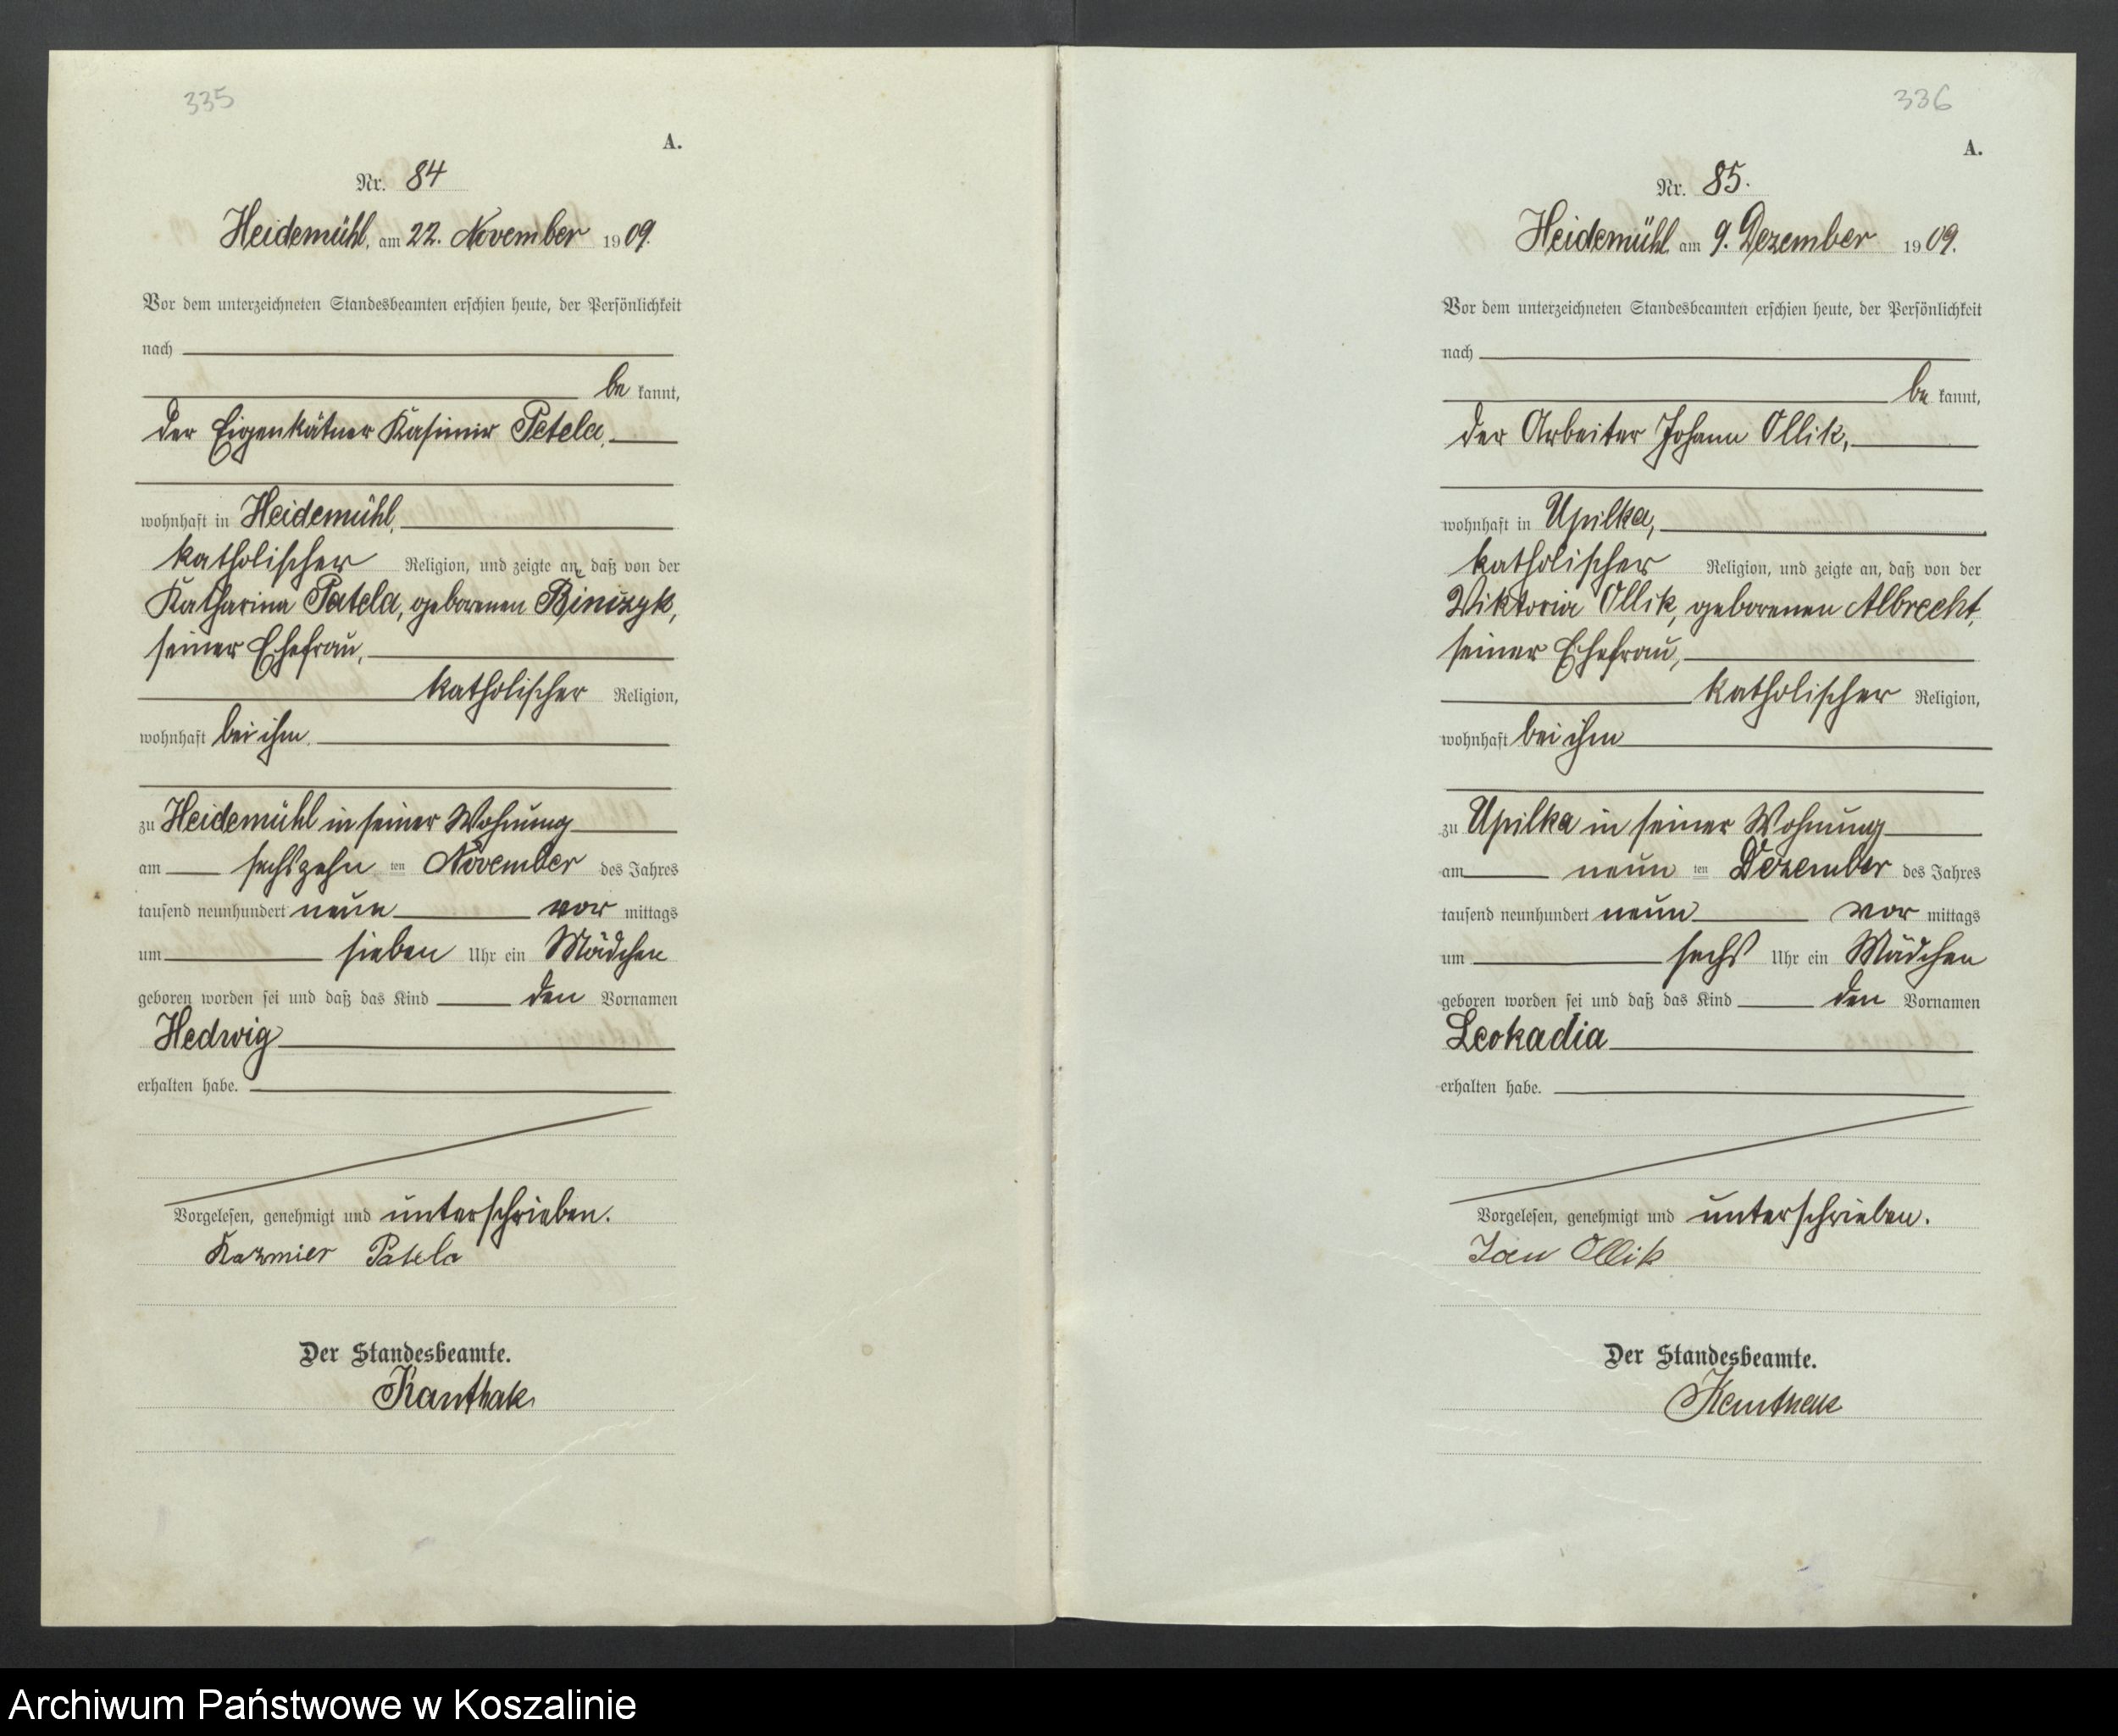 335
A.
Nr. 84
Heidemühl, am 22. November 1909.
Vor dem unterzeichneten Standesbeamten erschien heute, der Persönlichkeit
nach
be kannt,
der Eigenkätner Kasimir Patela,
wohnhaft in Heidemühl,
katholischer Religion, und zeigte an, daß von der
Katharina Patela, geborenen
seiner Ehefrau,
katholischer Religion,
wohnhaft bei ihm
zu Heidemühl in seiner Wohnung
am sechszehn ten November des Jahres
tausend neunhundert neun vor mittags
um sieben Uhr ein Mädchen
geboren worden sei und daß das Kind den Vornamen
Hedwig
erhalten habe.
Vorgelesen, genehmigt und unterschrieben.
Kazmier Patela
Der Standesbeamte.
Kanthak
336
A.
Nr. 85.
Heidemühl am 9. Dezember 1909.
Vor dem unterzeichneten Standesbeamten erschien heute, der Persönlichkeit
nach
be kannt,
der Arbeiter Johann Ollik,
wohnhaft in Upilka,
katholischer Religion, und zeigte an, daß von der
Wiktoria Ollik, geborenen Albrecht,
seiner Ehefrau,
katholischer Religion,
wohnhaft bei ihm
zu Upilka in seiner Wohnung
am neun ten Dezember des Jahres
tausend neunhundert neun vor mittags
um sechs Uhr ein Mädchen
geboren worden sei und daß das Kind den Vornamen
Leokadia
erhalten habe.
Vorgelesen, genehmigt und unterschrieben.
Jan Ollik
Der Standesbeamte.
Kanthak
Archiwum Państwowe w Koszalinie